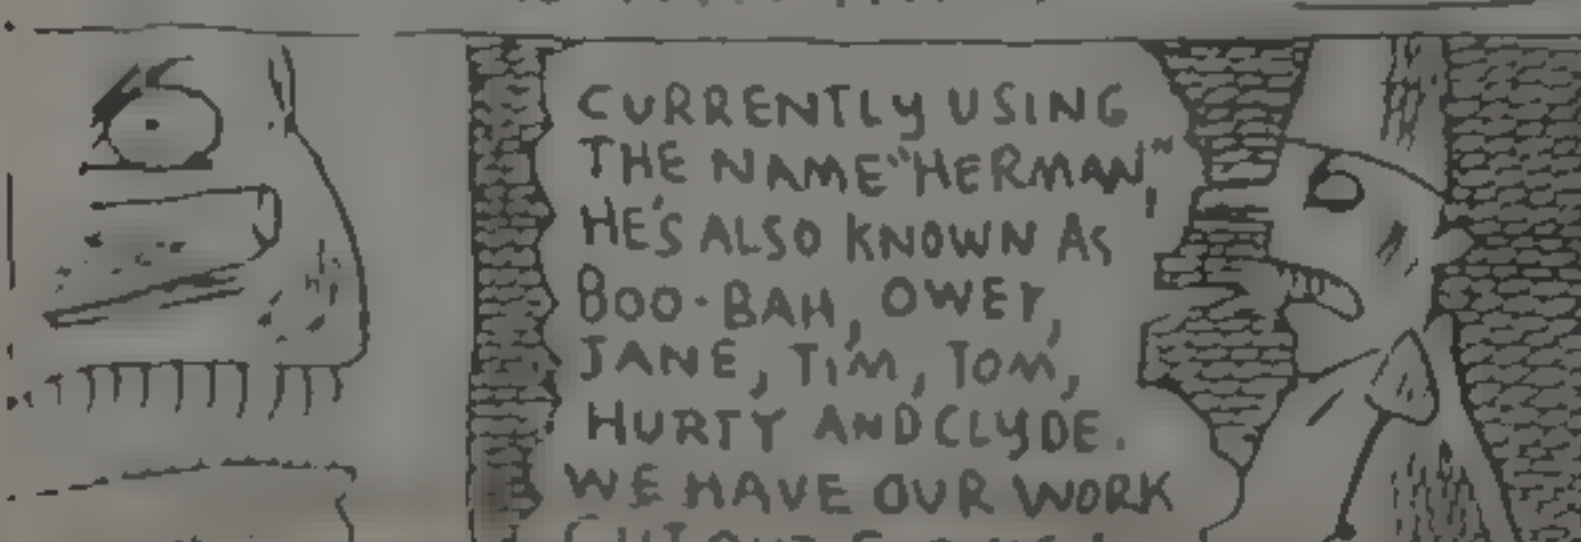 CURRENTLY USING
THE NAME "HERMAN,"
HE'S ALSO KNOWN AS
BOO-BAH, OWEY,
JANE, TIM, TOM,
HURTY AND CLYDE.
WE HAVE OUR WORK